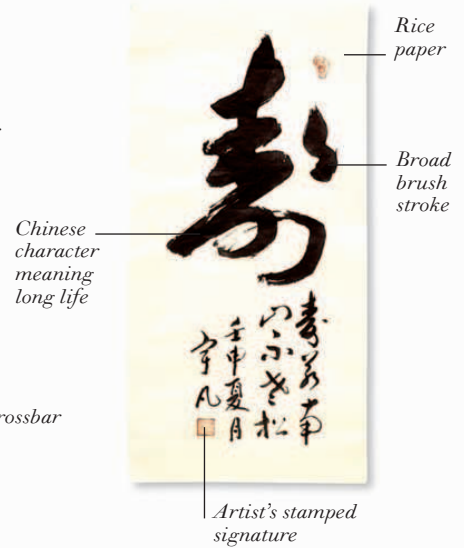 Rice
paper
Broad
brush
stroke
Chinese
character
meaning
long life
rossbar
Artist's stamped
signature
壽
壽若南
山不老松
壬申夏月
凡